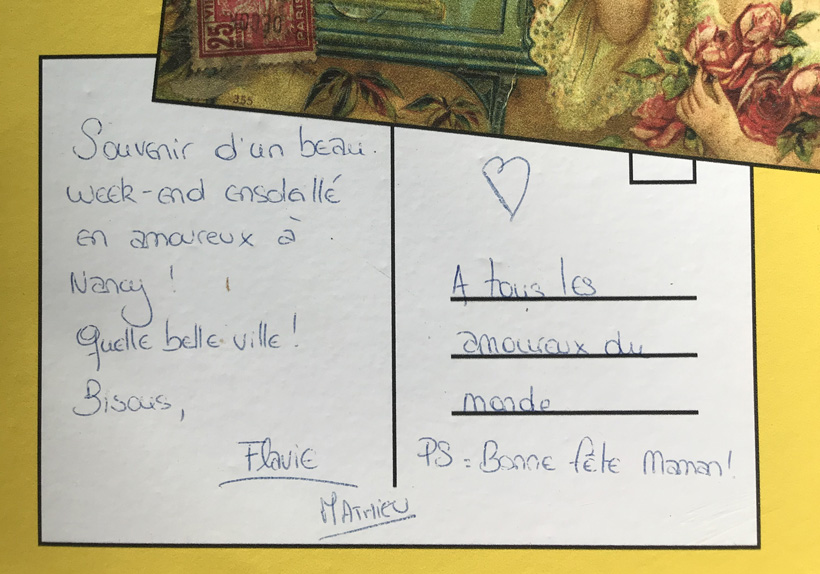 25
PARIS
355
Souvenir d'un beau
week-end ensolallé
en amoureux à
Nancy !
Quelle belle ville !
Bisous,
Flavie
Mathieu
A tous les
amoureux du
monde
PS : Bonne fête Maman !